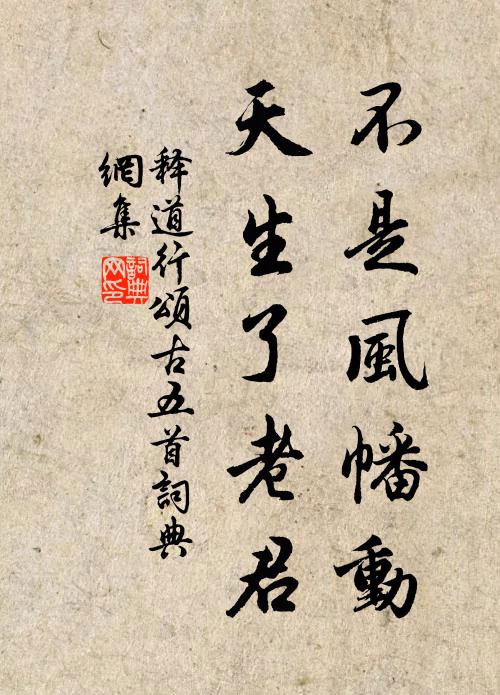 不是風幡動
天生了老君
释道行頌古五首詞典
網集
詞典
网印